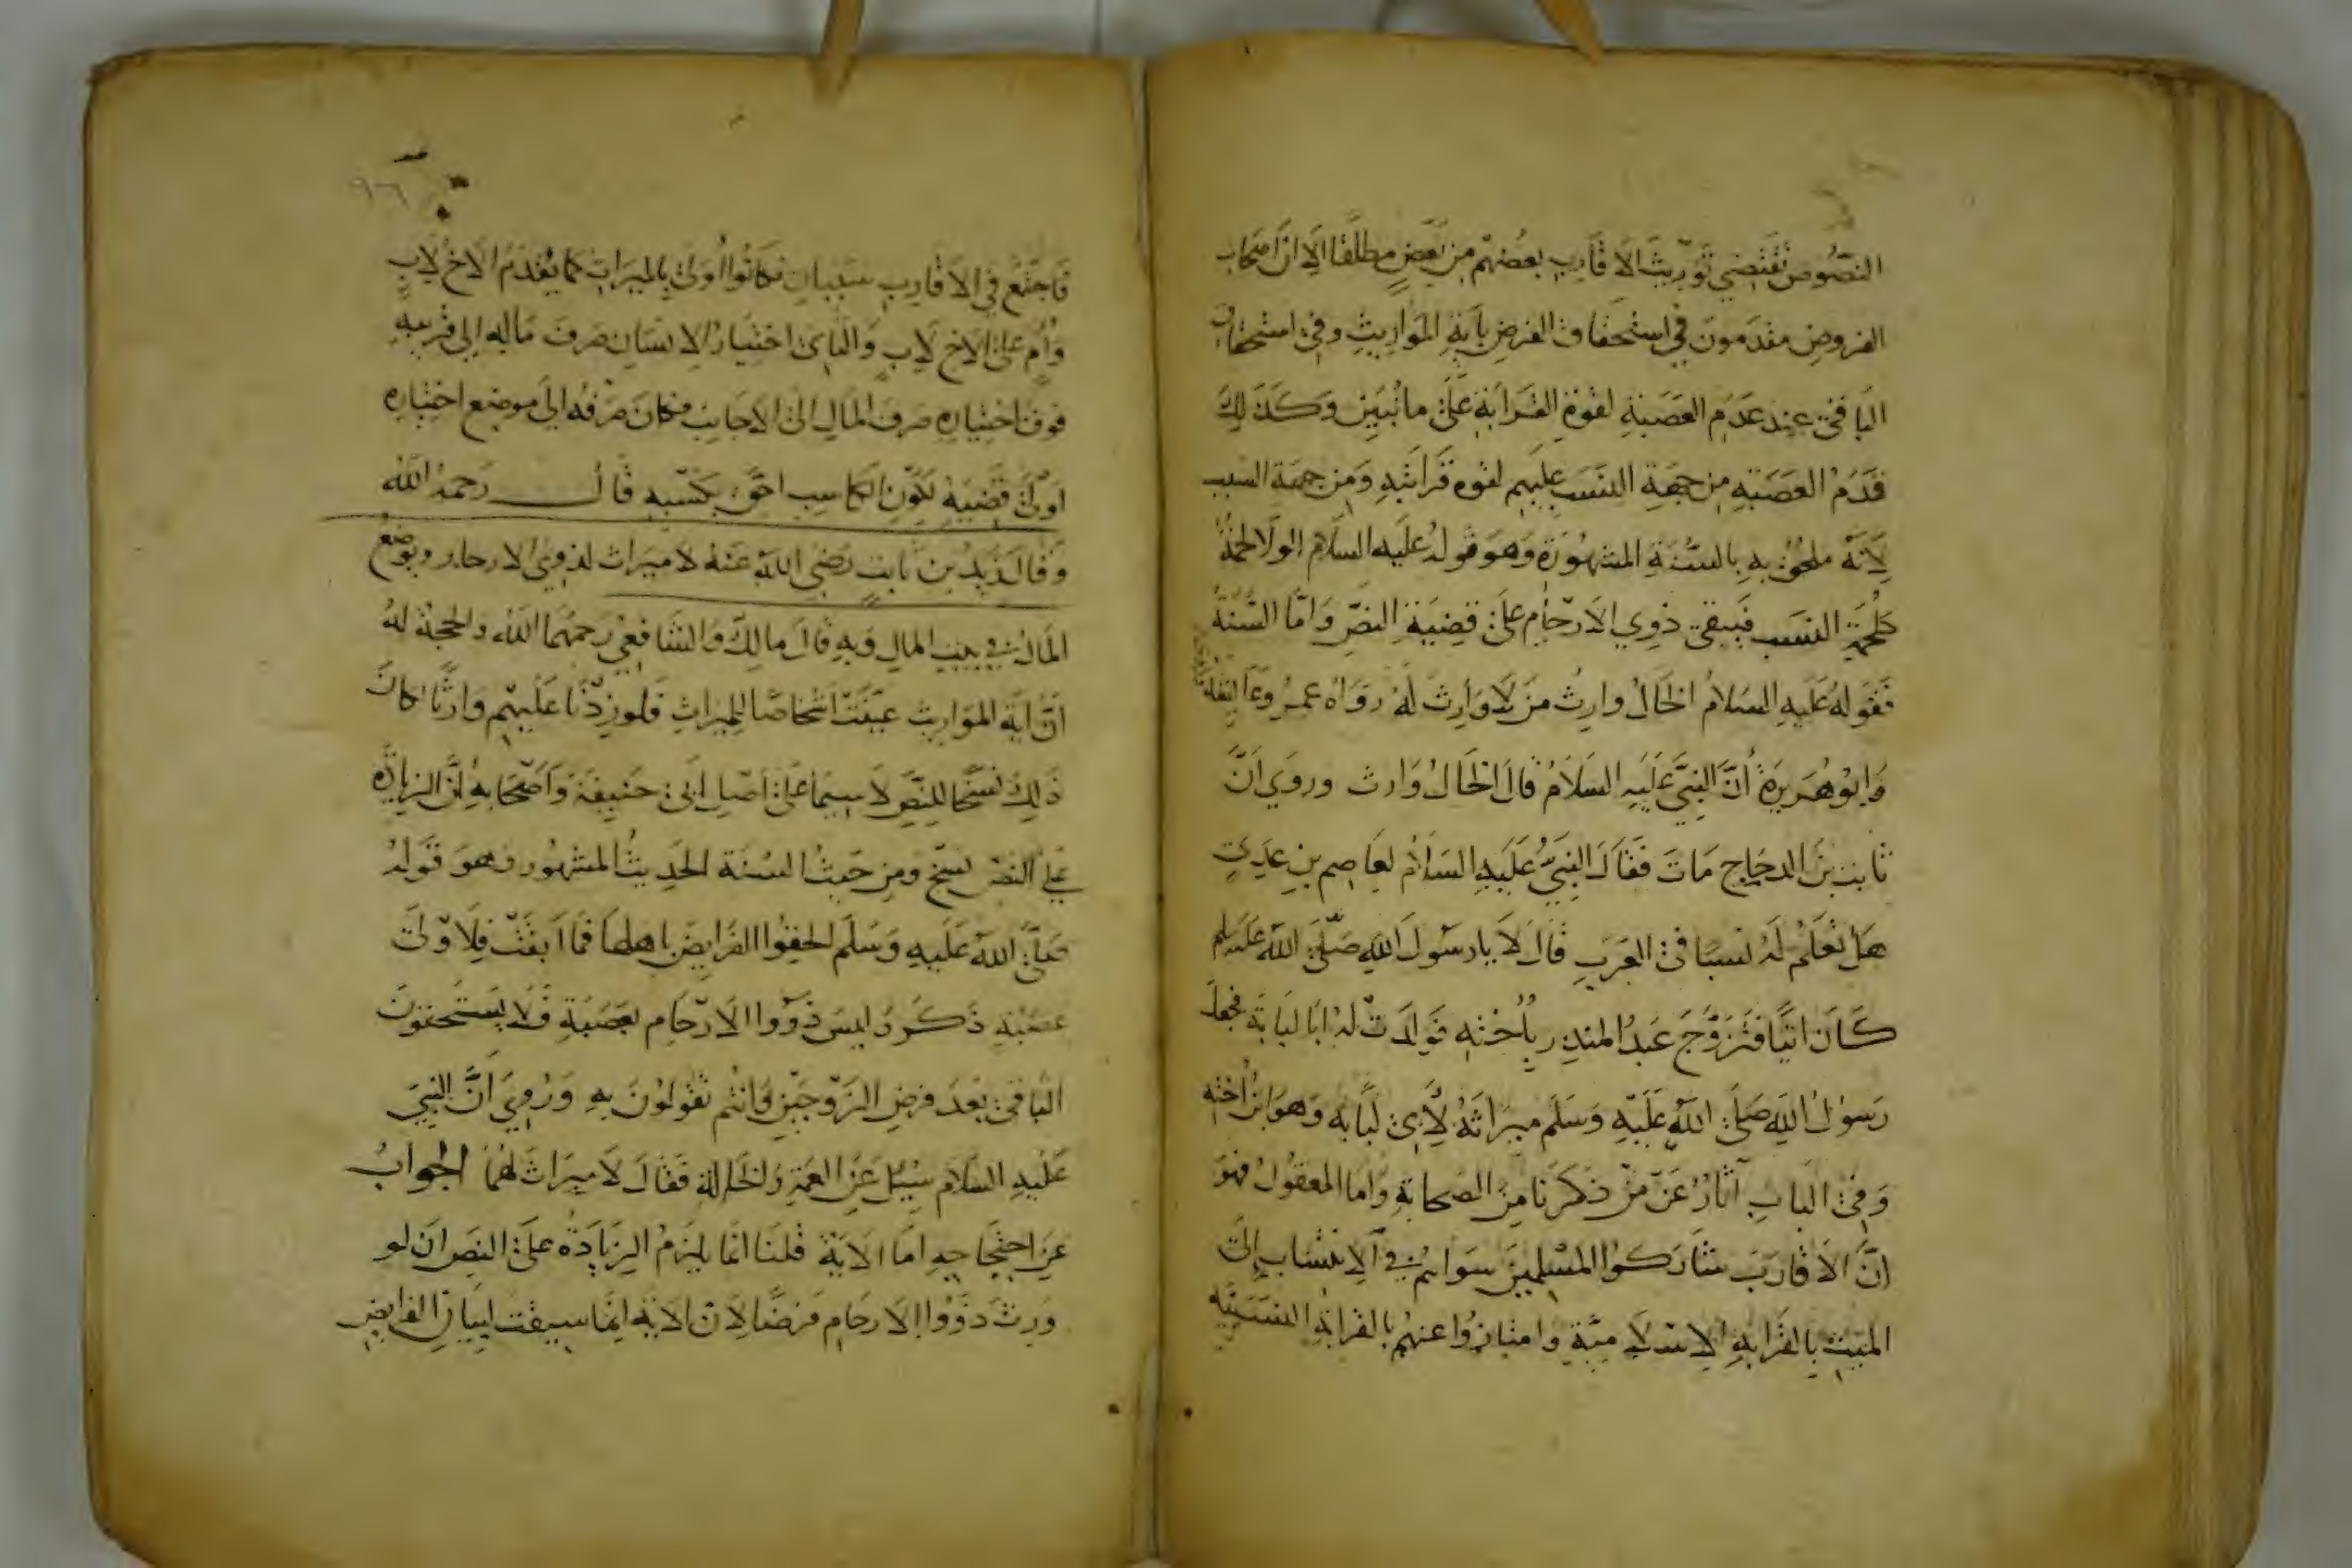 النصوص تقتضي توريث الاقارب بعضهم من بعض مطلقا الا ان اصحاب
الفروض مقدمون في استحقاق الفرض باية المواريث وفي استحقاق
الباقي عند عدم العصبة لقوة القرابة على ما نبين وكذلك
قدم العصبة من جهة النسب عليهم لقوة قرابته ومن جهة السبب
لانه ملحق به بالسنة المشهورة وهو قوله عليه السلام الولا لحمة
كلحمة النسب فيبقى ذوي الارحام على قضية النص واما السنة
فقوله عليه السلام الخال وارث من لا وارث له رواه عمر وعائشة
وابو هريرة ان النبي عليه السلام قال الخال وارث وروي ان
ثابت بن الدحاح مات فقال النبي عليه السلام لعاصم بن عدي
هل تعلم له نسبا في العرب قال لا يا رسول الله صلى الله عليه وسلم
كان اتيا فتزوج عبد المنذر باخته فولدت له ابا لبابة فجعل
رسول الله صلى الله عليه وسلم ميراثه لابي لبابه وهو ابن اخته
وفي الباب آثار عن من ذكرنا من الصحابة واما المعقول فهو
ان الاقارب شاركوا المسلمين سواهم في الانتساب الى
الميت بالقرابه الاسلامية وامتازوا عنهم بالقرابة النسبيه
٩٦
فاجتمع في الاقارب سببان فكانوا اولى بالميراث كما يقدم الاخ لاب
وام على الاخ لاب والباي اختيار الانسان صرف ماله الى قريبه
فوق اختياره صرف المال الى الاجانب فكان صرفه الى موضع اختياره
اولى قضية لكون الكاسب احق بكسبه قال رحمه الله
وقال زيد بن ثابت رضي الله عنه لا ميراث لذوي الارحام ويوضع
المال في بيت المال وبه قال مالك والشافعي رحمهما الله والحجة له
ان اية المواريث عينت اشخاصا للميراث فلو زدنا عليهم وارثا كان
ذلك نسخا للنص لا سيما على اصل ابي حنيفة واصحابه ان الزيادة
على النص نسخ ومن حيث السنة الحديث المشهور وهو قوله
صلى الله عليه وسلم الحقوا الفرايض باهلها فما ابقت فلاولى
عصبة ذكر وليس ذووا الارحام بعصبة فلا يستحقون
الباقي بعد فرض الزوجين وانتم تقولون به وروي ان النبي
عليه السلام سيل عن العمة والخالة فقال لا ميراث لهما الجواب
عن احتجاجه اما الاية قلنا انما يلزم الزيادة على النص ان لو
ورث ذووا الارحام فرضا لان الاية انما سيقت لبيان الفرايض